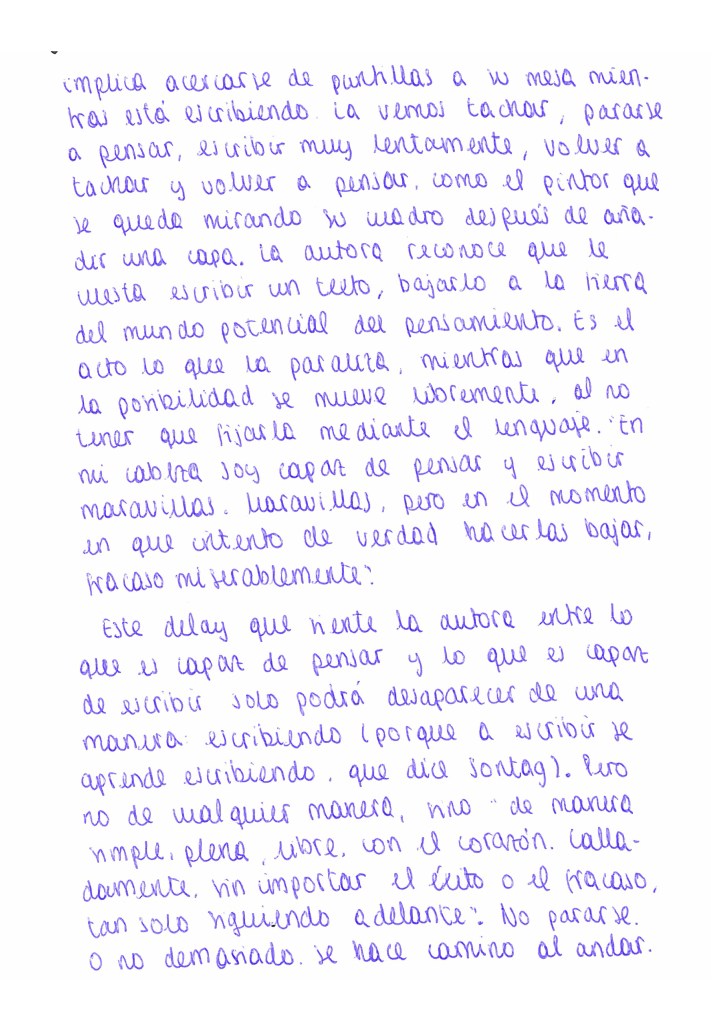 implica acercarse de puntillas a su mesa mien-
tras está escribiendo. La vemos tachar, pararse
a pensar, escribir muy lentamente, volver a
tachar y volver a pensar, como el pintor que
se queda mirando su cuadro después de aña-
dir una capa. La autora reconoce que le
cuesta escribir un texto, bajarlo a la tierra
del mundo potencial del pensamiento. Es el
acto lo que la paraliza, mientras que en
la posibilidad se mueve libremente, al no
tener que fijarla mediante el lenguaje. "En
mi cabeza soy capaz de pensar y escribir
maravillas. Maravillas, pero en el momento
en que intento de verdad hacerlas bajar,
fracaso miserablemente".
Este delay que siente la autora entre lo
que es capaz de pensar y lo que es capaz
de escribir solo podrá desaparecer de una
manera: escribiendo (porque a escribir se
aprende escribiendo, que dice Sontag). Pero
no de cualquier manera, sino "de manera
simple, plena, libre, con el corazón. Calla-
damente, sin importar el éxito o el fracaso,
tan solo siguiendo adelante". No pararse.
O no demasiado. Se hace camino al andar.